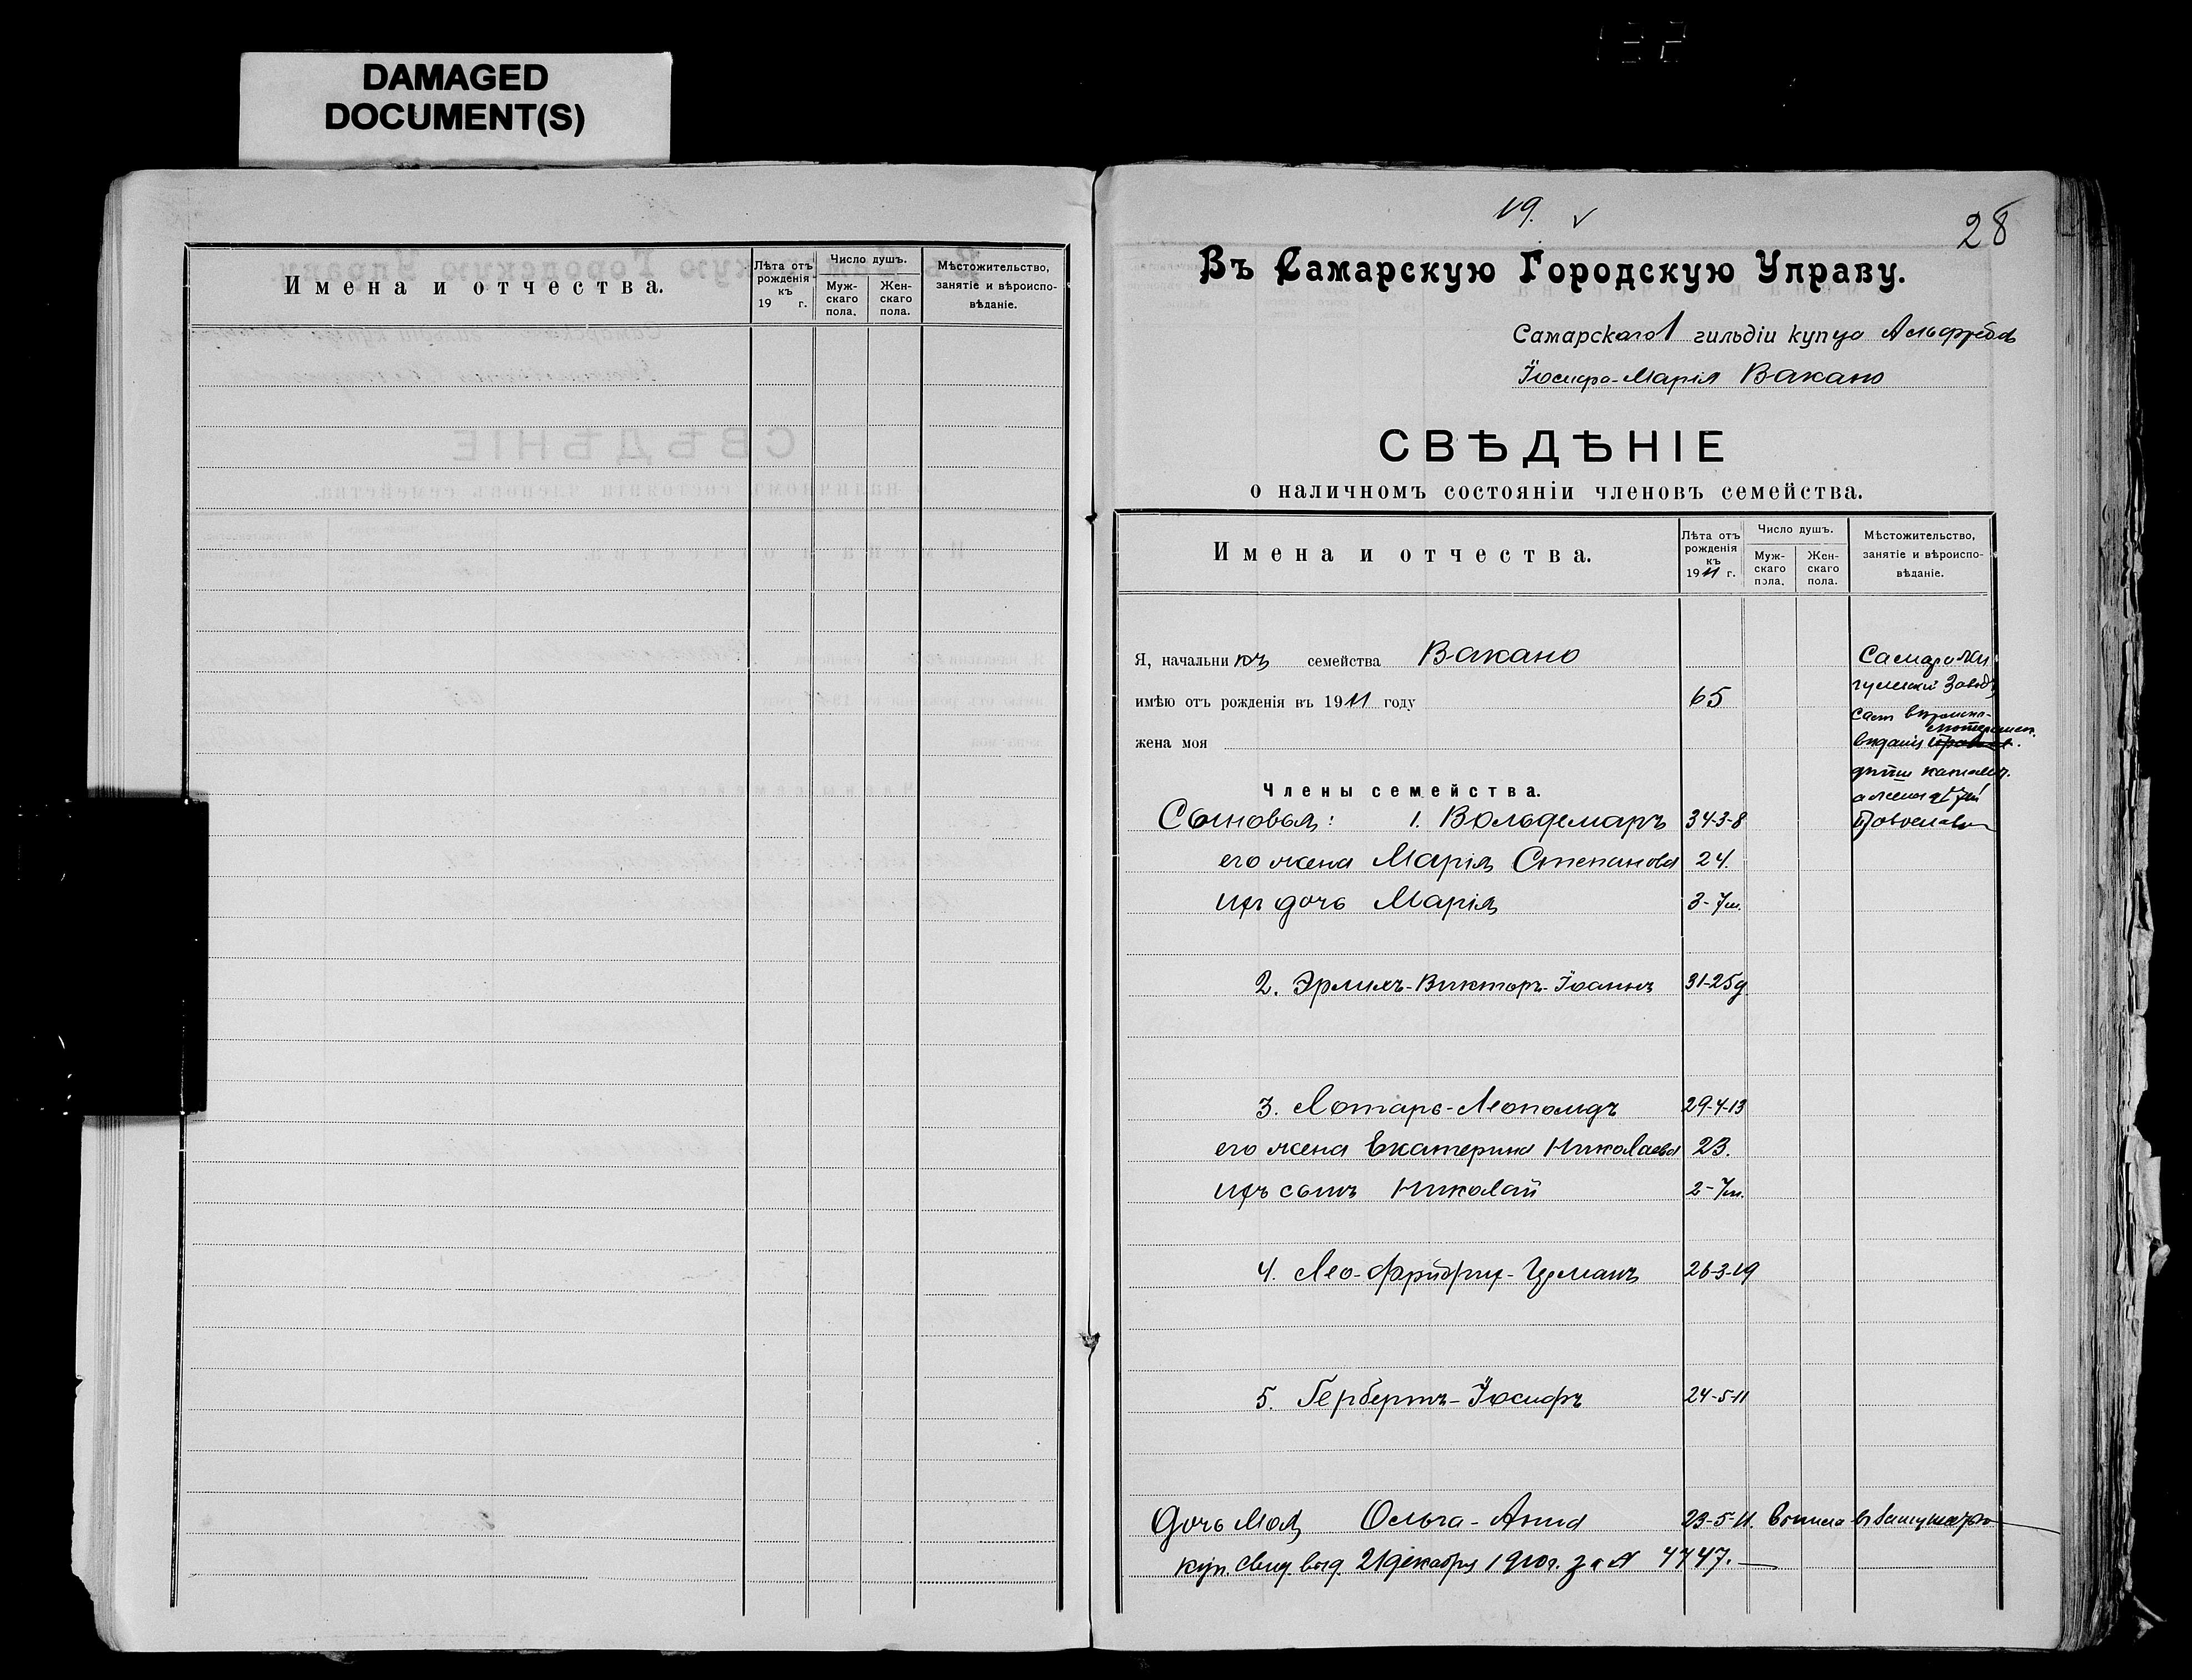 DAMAGED
DOCUMENT(S)
Имена и отчества.
Лѣта отъ рожденія къ 19 г.
Число душъ.
Мужскаго пола.
Женскаго пола.
Мѣстожительство, занятіе и вѣроисповѣданіе.
19.
28
Въ Самарскую Городскую Управу.
Самарскаго 1 гильдіи купца Альфреда
Іосифа-Марія Вакано
СВѢДѢНІЕ
о наличномъ состояніи членовъ семейства.
Имена и отчества.
Лѣта отъ рожденія къ 1911 г.
Число душъ.
Мужскаго пола.
Женскаго пола.
Мѣстожительство, занятіе и вѣроисповѣданіе.
Я, начальникъ семейства Вакано
имѣю отъ рожденія въ 1911 году 65
жена моя
Самара Жи
гулевскій Заводъ
дѣти катол.
Члены семейства.
Сыновья: 1. Вольдемаръ 34-3-8
его жена Марія Степанова 24.
ихъ дочь Марія 3-7м.
2. Эрихъ-Викторъ-Іоаннъ 31-25д
3. Лотаръ-Леопольдъ 29-4-13
его жена Екатерина Николаева 23.
ихъ сынъ Николай 2-7м.
4. Лео-Фридрих-Германъ 26-3-19
5. Гербертъ-Іосифъ 24-5-11
Дочь моя Ольга-Анна 23-5-11. вышла въ замужество
куп. свид. выд. 21 декабря 1910 г. за № 4747.